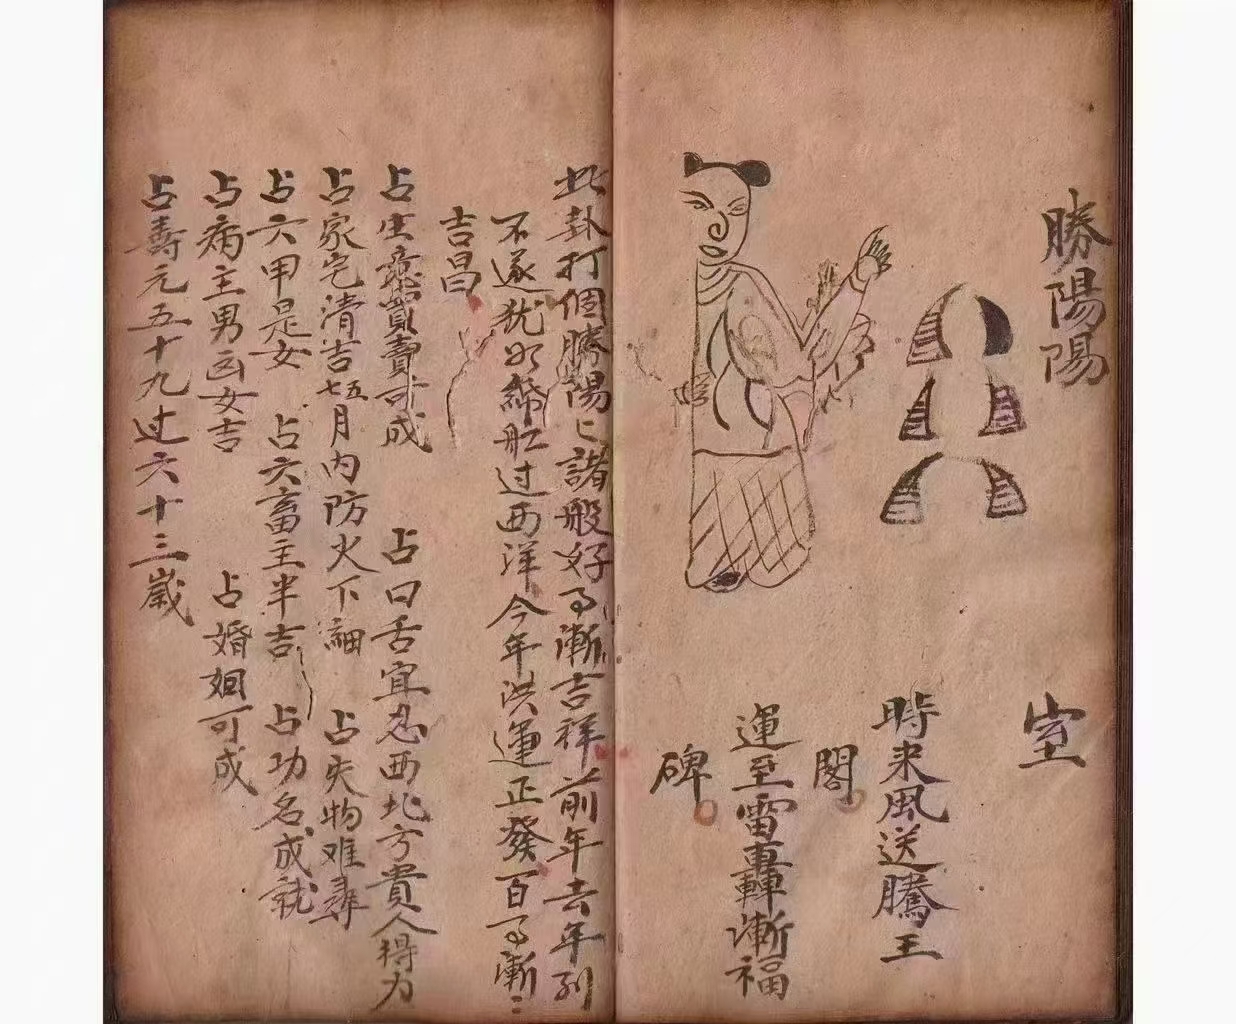 勝陽陽
室
時来風送騰王
閣
運至雷轟漸福
碑
此卦打個勝陽〻諸般好事漸吉祥前年去年列
不遂犹如綿舡过西洋今年洪運正發百事漸〻
吉昌
占生意買賣可成 占口舌宜忍西北方貴人得力
占家宅清吉七五月内防火下 占失物难尋
占六甲是女 占六畜主半吉 占功名成就
占病主男凶女吉 占婚姻可成
占壽元五十九过六十三歲